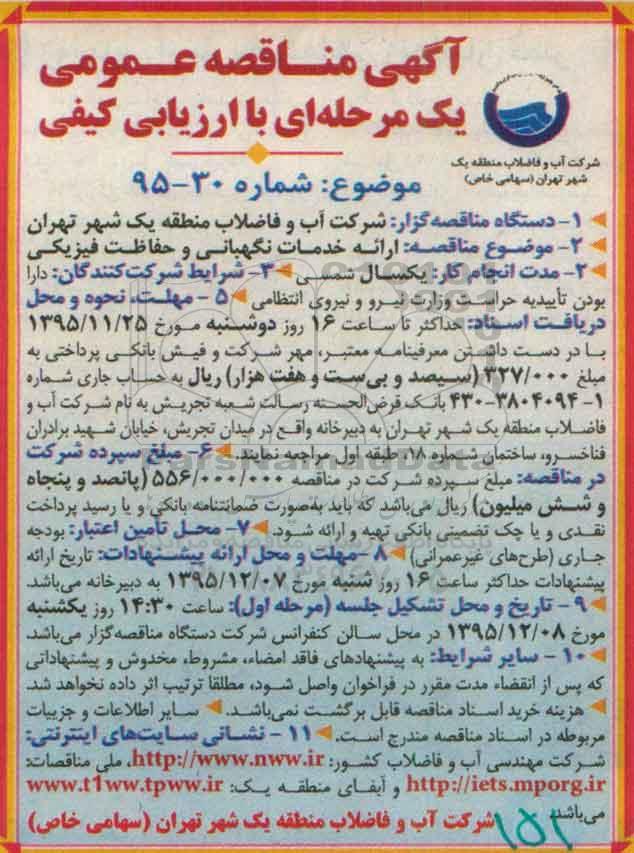 آگهی مناقصه عمومی
یک مرحله‌ای با ارزیابی کیفی
شرکت آب و فاضلاب منطقه یک
شهر تهران (سهامی خاص)
موضوع: شماره ۳۰-۹۵
۱- دستگاه مناقصه‌گزار: شرکت آب و فاضلاب منطقه یک شهر تهران
۲- موضوع مناقصه: ارائه خدمات نگهبانی و حفاظت فیزیکی
۲- مدت انجام کار: یکسال شمسی ۳- شرایط شرکت‌کنندگان: دارا
بودن تأییدیه حراست وزارت نیرو و نیروی انتظامی ۵ - مهلت، نحوه و محل
دریافت اسناد: حداکثر تا ساعت ۱۶ روز دوشنبه مورخ ۱۳۹۵/۱۱/۲۵
با در دست داشتن معرفینامه معتبر، مهر شرکت و فیش بانکی پرداختی به
مبلغ ۳۲۷/۰۰۰ (سیصد و بی‌ست و هفت هزار) ریال به حساب جاری شماره
۱-۴۳۰-۳۸۰۴۰۹۴ بانک قرض‌الحسنه رسالت شعبه تجریش به نام شرکت آب و
فاضلاب منطقه یک شهر تهران به دبیرخانه واقع در میدان تجریش، خیابان شهید برادران
فناخسرو، ساختمان شماره ۱۸، طبقه اول مراجعه نمایند. ۶- مبلغ سپرده شرکت
در مناقصه: مبلغ سپرده شرکت در مناقصه ۵۵۶/۰۰۰/۰۰۰ (پانصد و پنجاه
و شش میلیون) ریال می‌باشد که باید به‌صورت ضمانتنامه بانکی و یا رسید پرداخت
نقدی و یا چک تضمینی بانکی تهیه و ارائه شود. ۷- محل تأمین اعتبار: بودجه
جاری (طرح‌های غیرعمرانی) ۸ -مهلت و محل ارائه پیشنهادات: تاریخ ارائه
پیشنهادات حداکثر ساعت ۱۶ روز شنبه مورخ ۱۳۹۵/۱۲/۰۷ به دبیرخانه می‌باشد.
۹- تاریخ و محل تشکیل جلسه (مرحله اول): ساعت ۱۴:۳۰ روز یکشنبه
مورخ ۱۳۹۵/۱۲/۰۸ در محل سالن کنفرانس شرکت دستگاه مناقصه‌گزار می‌باشد.
۱۰ - سایر شرایط: به پیشنهادهای فاقد امضاء، مشروط، مخدوش و پیشنهاداتی
که پس از انقضاء مدت مقرر در فراخوان واصل شود، مطلقا ترتیب اثر داده نخواهد شد.
هزینه خرید اسناد مناقصه قابل برگشت نمی‌باشد. سایر اطلاعات و جزییات
مربوطه در اسناد مناقصه مندرج است. ۱۱ - نشانی سایت‌های اینترنتی:
شرکت مهندسی آب و فاضلاب کشور: http://www.nww.ir، ملی مناقصات:
http://iets.mporg.ir و آبفای منطقه یک: www.t1ww.tpww.ir
می‌باشد.
شرکت آب و فاضلاب منطقه یک شهر تهران (سهامی خاص)
۱۵۱